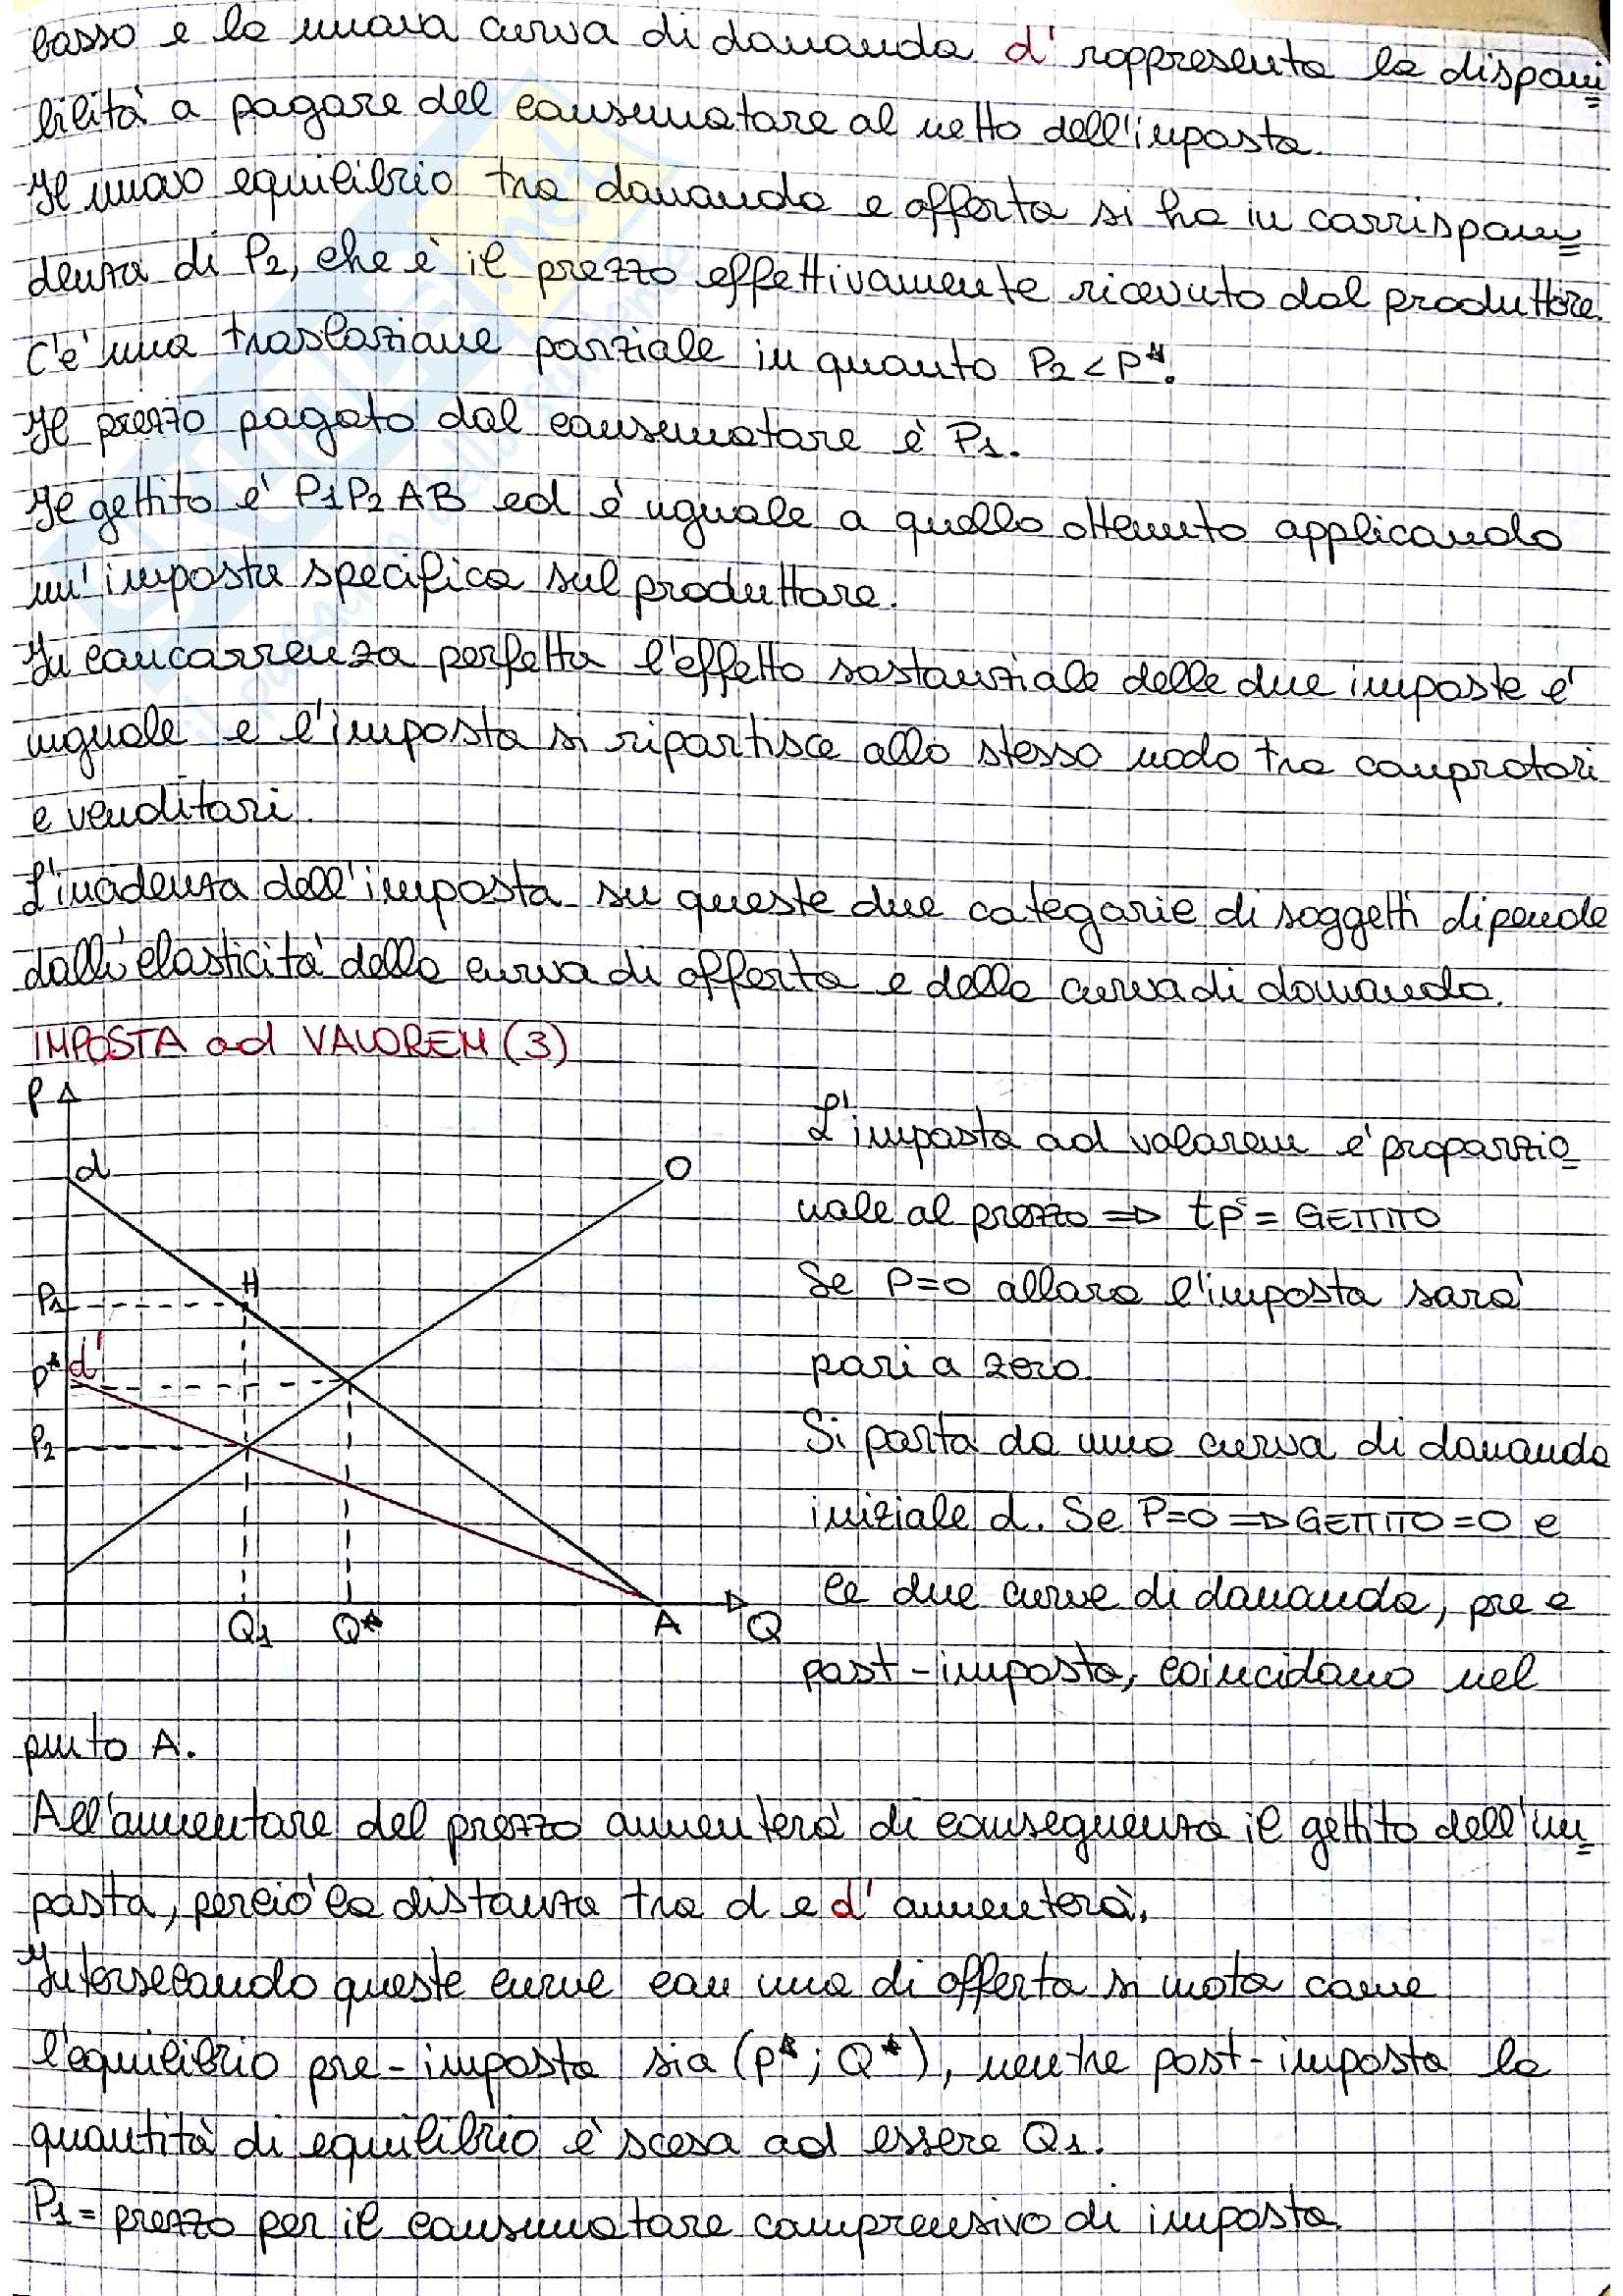 basso e la nuova curva di domanda d' rappresenta la disponi
bilità a pagare del consumatore al netto dell'imposta.
Il nuovo equilibrio tra domanda e offerta si ha in corrispon
denza di P2, che è il prezzo effettivamente ricevuto dal produttore.
C'è una traslazione parziale in quanto P2 < P*.
Il prezzo pagato dal consumatore è P1.
Il gettito è P1P2AB ed è uguale a quello ottenuto applicando
un'imposta specifica sul produttore.
In concorrenza perfetta l'effetto sostanziale delle due imposte è
uguale e l'imposta si ripartisce allo stesso modo tra compratori
e venditori.
L'incidenza dell'imposta su queste due categorie di soggetti dipende
dall'elasticità della curva di offerta e della curva di domanda.
IMPOSTA ad VALOREM (3)
P
d
O
P1
H
P*
d'
P2
Q1
Q*
A
Q
L'imposta ad valorem è proporzio
nale al prezzo => tps = GETTITO
Se P=0 allora l'imposta sarà
pari a zero.
Si parta da una curva di domanda
iniziale d. Se P=0 => GETTITO=0 e
le due curve di domanda, pre e
post-imposta, coincidono nel
punto A.
All'aumentare del prezzo aumenterà di conseguenza il gettito dell'im
posta, perciò la distanza tra d e d' aumenterà.
Intersecando queste curve con una di offerta si nota come
l'equilibrio pre-imposta sia (P*; Q*), mentre post-imposta la
quantità di equilibrio è scesa ad essere Q1.
P1 = prezzo per il consumatore comprensivo di imposta.